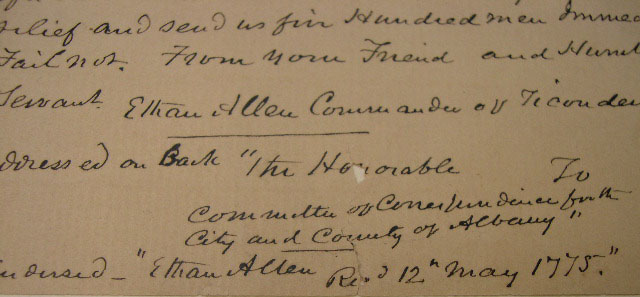 relief and send us five Hundred men Immed
Fail not. From your Friend and Humb
Servant. Ethan Allen Commander of Ticonder
ddressed on Back "The Honorable To
Committee of Correspondence for the
City and County of Albany"
Endorsed - "Ethan Allen Recd 12th May 1775."